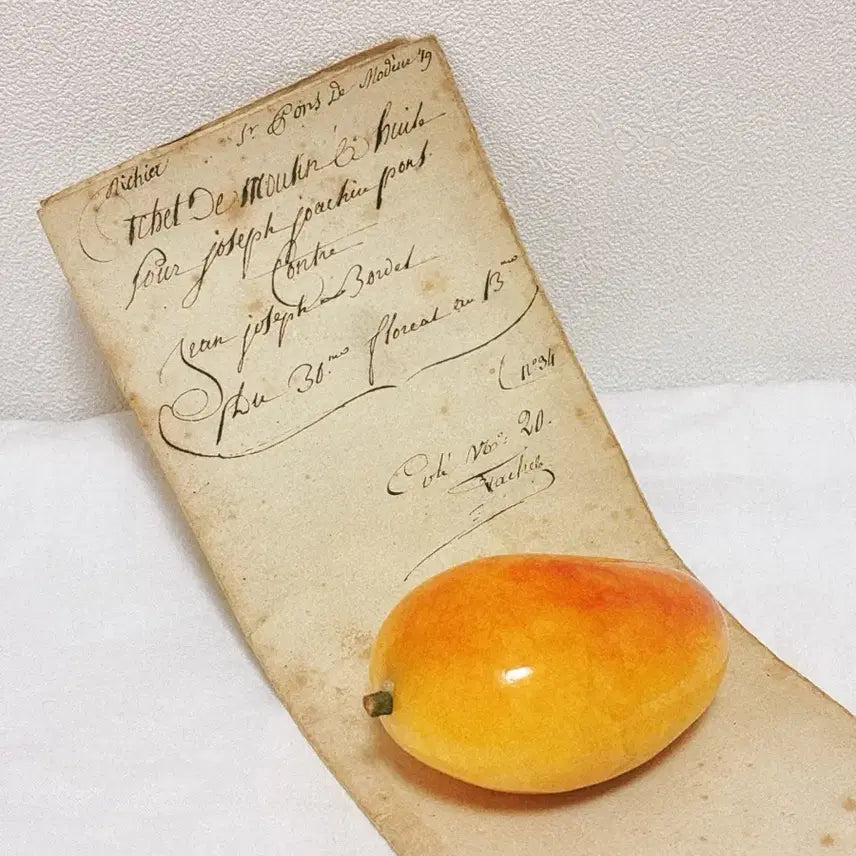 Richier
Sr. Pons De Modène 19
achet De moulin à huile
pour joseph joachin pons
Contre
Jean joseph Bordet
Du 30.me floreal an 13.me
n.º 34
Coté N.º 20.